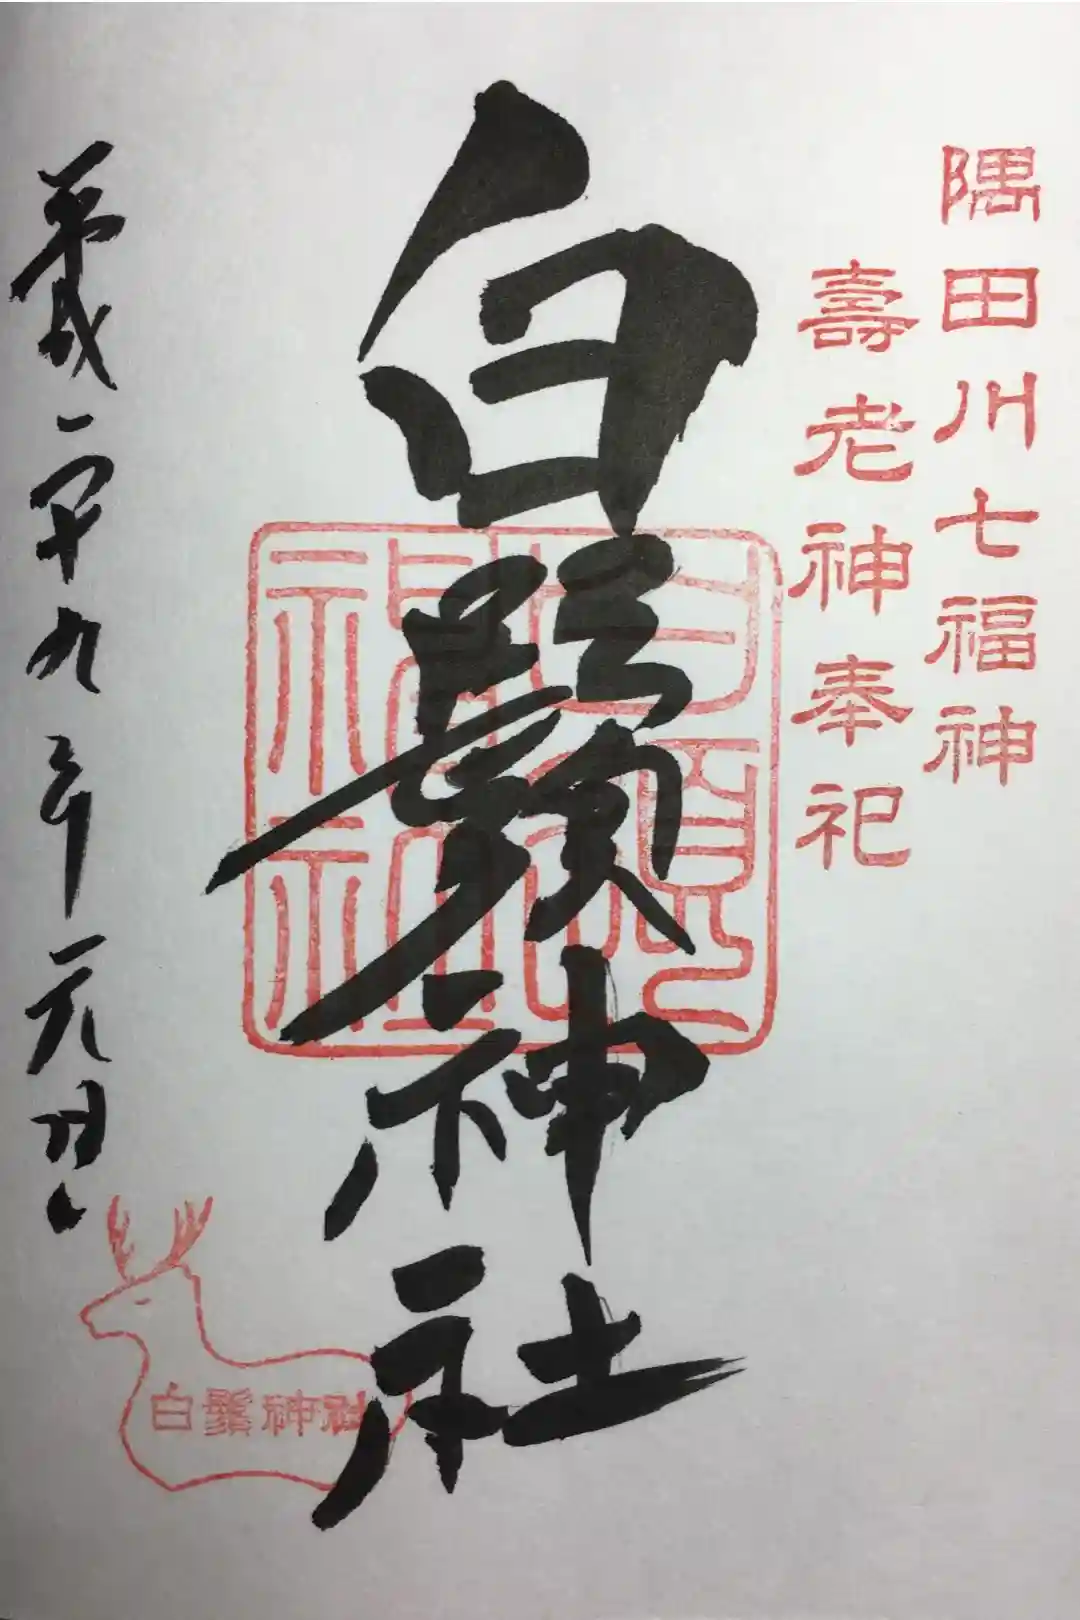 隅田川七福神
壽老神奉祀
白鬚神社
白鬚神社
平成二十九年元旦
白鬚神社